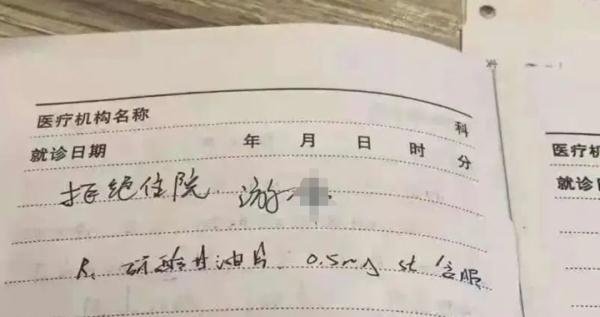 医疗机构名称 科
就诊日期 年 月 日 时 分
拒绝住院 游
R. 硝酸甘油片 0.5mg st 含服
医疗机
就诊日